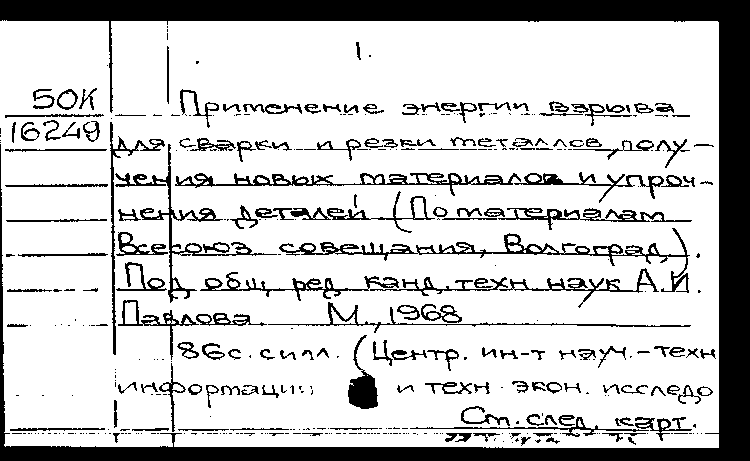 1.
50К Применение энергии взрыва
16249 для сварки и резки металлов, полу-
чения новых материалов и упроч-
нения деталей (По материалам
Всесоюз совещания, Волгоград).
Под общ, ред. канд. техн наук А.И.
Павлова. М., 1968
86с. силл. (Центр. ин-т науч.-техн
информации и техн. экон. исследо
См. след. карт.